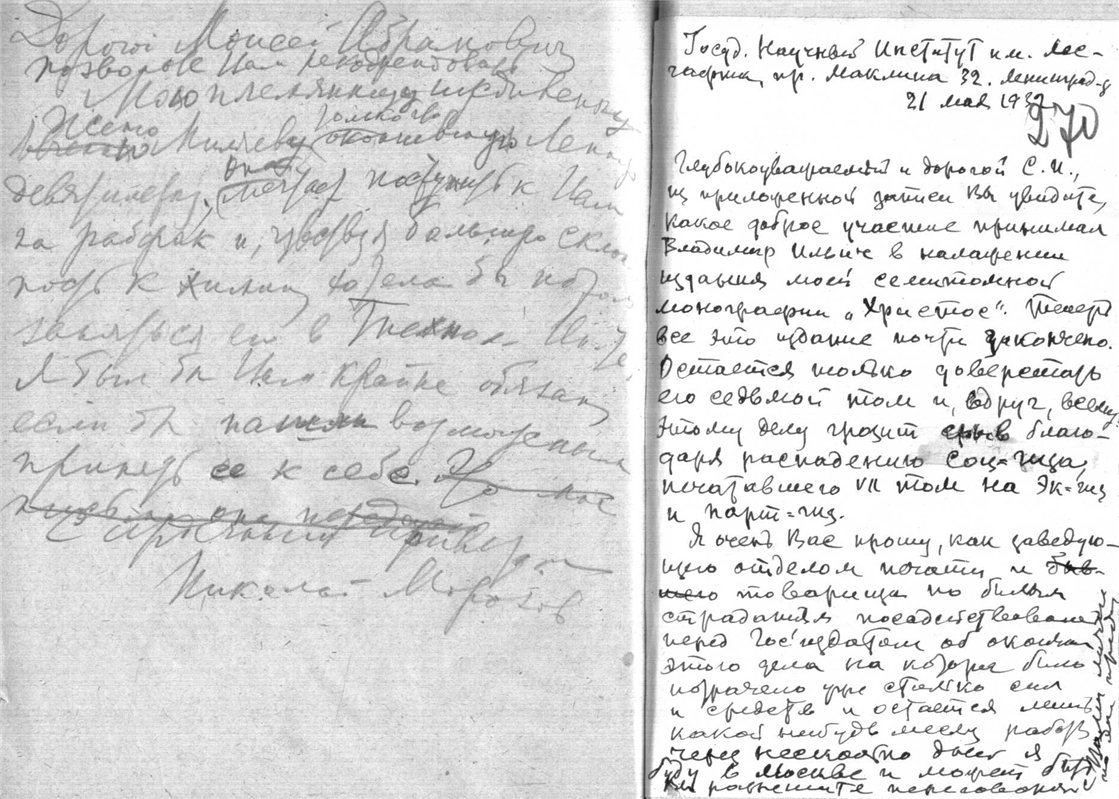 Дорогой Моисей Абрамович
позвольте Вам рекомендовать
Мою племянницу
Ксению
окончившую
девятилетку, она поступить к Вам
на рабфак и, чувствуя большую склон
ность к химии хотела бы потом
заняться ею в Технол.
Я был бы Вам крайне обязан,
если бы нашли возможным
принять ее к себе.
С
Николай Морозов
Госуд. Научный Институт им. Лес-
гафта, пр. Маклина 32. Ленинград
21 мая 193
270
Глубокоуважаемый и дорогой С. И.,
из приложенной записи Вы увидите,
какое доброе участие принимал
Владимир Ильич в налажении
издания моей семитомной
монографии „Христос". Теперь
все это издание почти закончено.
Остается только доверстать
его седьмой том и, вдруг, всему
этому делу грозит срыв благо-
даря распадению Соц-гиза,
печатавшего VII том на Эк-гиз
и Парт-гиз.
Я очень Вас прошу, как заведую-
щего отделом печати и быв-
шего товарища по былым
страданиям посодействовать
перед Госиздатом об окончании
этого дела на которое было
потрачено уже столько сил
и средств и остается лишь
какой нибудь месяц работы
через несколько дней я
буду в Москве и может быть
Вы разрешите переговорить